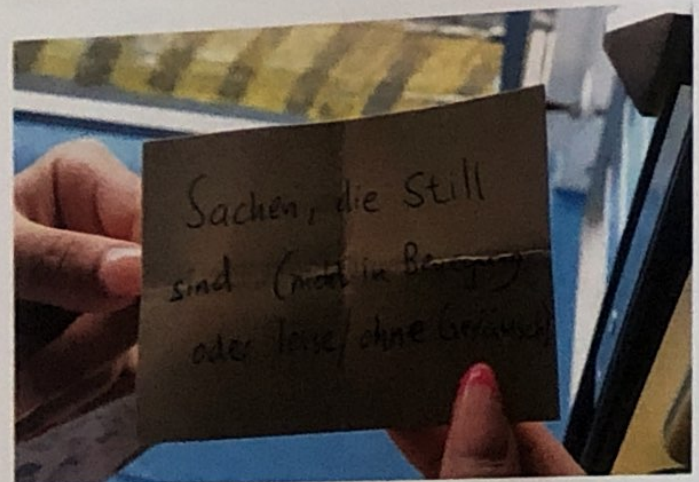 Sachen, die Still
sind (nicht in Bewegung
oder leise/ohne Geräusch)